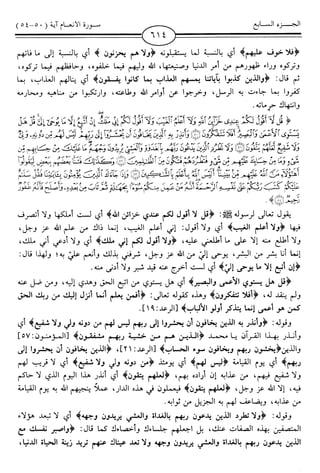 الجـزء السـابع ٦١٤ سـورة الأنعـام آية (٥٠-٥٤)
﴿فلا خوف عليهم﴾ أي بالنسبة لما يستقبلونه ﴿ولا هم يحزنون﴾ أي بالنسبة إلى ما فاتهم
وتركوه وراء ظهورهم من أمر الدنيا وصنيعتها، الله وليهم فيما خلفوه، وحافظهم فيما تركوه،
ثم قال: ﴿والذين كذبوا بآياتنا يمسهم العذاب بما كانوا يفسقون﴾ أي ينالهم العذاب، بما
كفروا بما جاءت به الرسل، وخرجوا عن أوامر الله وطاعته، وارتكبوا من مناهيه ومحارمه
وانتهاك حرماته.
﴿قُل لَّا أَقُولُ لَكُمْ عِندِي خَزَائِنُ اللَّهِ وَلَا أَعْلَمُ الْغَيْبَ وَلَا أَقُولُ لَكُمْ إِنِّي مَلَكٌ إِنْ أَتَّبِعُ إِلَّا مَا يُوحَى إِلَيَّ قُلْ هَلْ
يَسْتَوِي الْأَعْمَى وَالْبَصِيرُ أَفَلَا تَتَفَكَّرُونَ
يقول تعالى لرسوله ﷺ: ﴿قل لا أقول لكم عندي خزائن الله﴾ أي لست أملكها ولا أتصرف
فيها ﴿ولا أعلم الغيب﴾ أي ولا أقول: إني أعلم الغيب، إنما ذاك من علم الله عز وجل،
ولا أطلع منه إلا على ما أطلعني عليه، ﴿ولا أقول لكم إني ملك﴾ أي ولا أدعي أني ملك،
إنما أنا بشر من البشر، يوحى إليّ من الله عز وجل، شرفني بذلك وأنعم عليّ به؛ ولهذا قال:
﴿إن أتبع إلا ما يوحى إليّ﴾ أي لست أخرج عنه قيد شبر ولا أدنى منه.
﴿قل هل يستوي الأعمى والبصير﴾ أي هل يستوي من اتبع الحق وهدي إليه، ومن ضل عنه
ولم ينقد له، ﴿أفلا تتفكرون﴾ وهذه كقوله تعالى: ﴿أفمن يعلم أنما أنزل إليك من ربك الحق
كمن هو أعمى إنما يتذكر أولو الألباب﴾ [الرعد: ١٩].
وقوله: ﴿وأنذر به الذين يخافون أن يحشروا إلى ربهم ليس لهم من دونه ولي ولا شفيع﴾ أي
وأنـذر بهـذا القـرآن يـا محمـد ﴿الـذيـن هـم مـن خشيـة ربهـم مشفقـون﴾ [المـؤمنـون: ٥٧]
والذين ﴿يخشون ربهم ويخافون سوء الحساب﴾ [الرعد: ٢١]، ﴿الذين يخافون أن يحشروا إلى
ربهم﴾ أي يوم القيامة ﴿ليس لهم﴾ أي يومئذ ﴿من دونه ولي ولا شفيع﴾ أي لا قريب لهم
ولا شفيع فيهم، من عذابه إن أراده بهم، ﴿لعلهم يتقون﴾ أي أنذر هذا اليوم الذي لا حاكم
فيه، إلا الله عز وجل، ﴿لعلهم يتقون﴾ فيعملون في هذه الدار، عملاً ينجيهم الله به يوم القيامة
من عذابه، ويضاعف لهم به الجزيل من ثوابه.
وقوله: ﴿ولا تطرد الذين يدعون ربهم بالغداة والعشي يريدون وجهه﴾ أي لا تبعد هؤلاء
المتصفين بهذه الصفات عنك، بل اجعلهم جلساءك وأخصاءك كما قال: ﴿واصبر نفسك مع
الذين يدعون ربهم بالغداة والعشي يريدون وجهه ولا تعد عيناك عنهم تريد زينة الحياة الدنيا،